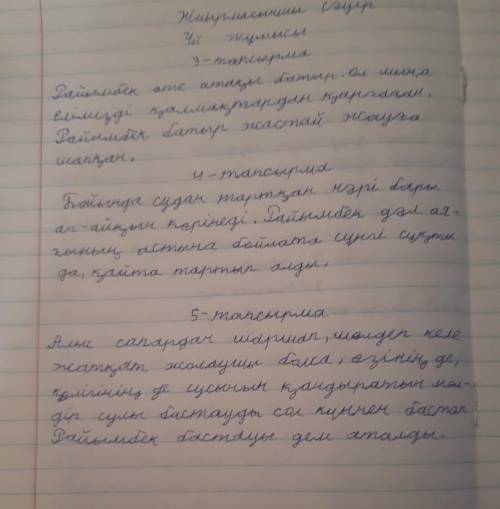 Жиырмасыншы сәуір
Үй жұмысы
3-тапсырма
Райымбек өте атақты батыр. Ол мына
елімізді қалмақтардан қорғаған.
Райымбек батыр жастай жауға
шапқан.
4-тапсырма
Бойында судан тартқан нәрі бары
ап-айқын көрінеді. Райымбек дәл ағ-
ғының астына бойлата сүңгі сұқты
да, қайта тартып алды.
5-тапсырма
Алыс сапардан шаршап, шөлдеп келе
жатқат жолаушы болса, өзінің де,
көлігінің де сусынын қандыратын мөл-
дір сулы бастауды сол күннен бастап
Райымбек бастауы деп аталды.